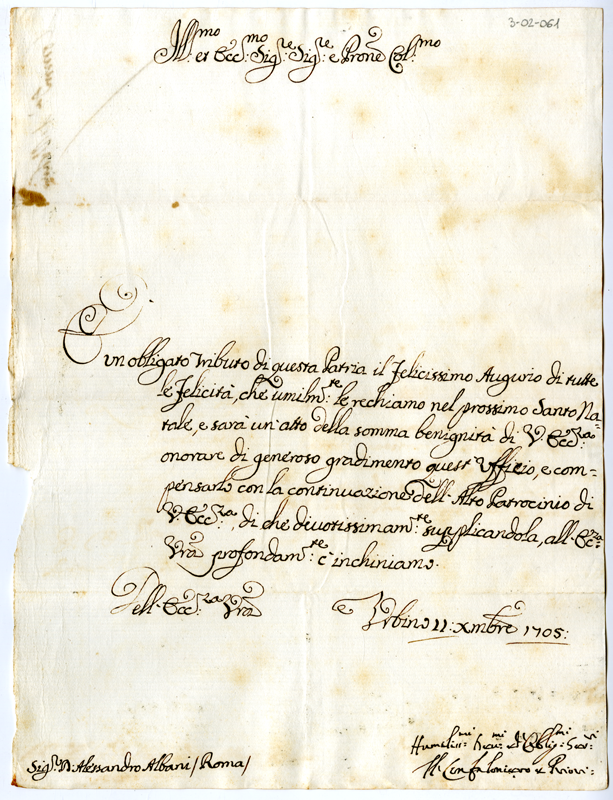 3-02-061
Ill.mo et Ecc.mo Sig.re Sig.re e Prone Col.mo
È un obligato tributo di questa Patria il Felicissimo Augurio di tutte
le Felicità, che umilm.te le rechiamo nel prossimo Santo Na=
tale, e sarà un'atto della somma benignità di V. Ecc.za
onorare di generoso gradimento quest'Uffizio, e com=
pensarlo con la continuazione dell'Alto Patrocinio di
V. Ecc.za, di che divotissimam.te supplicandola, all'Ecc.za
Vra profondam.te c'inchiniamo.
Dell'Ecc.za Vra
Urbino 11: Xmbre 1705:
Humiliss.mi Dev.mi et Oblig.mi Ser.vi
Il Confaloniero e Priori
Sig.r D. Alessandro Albani / Roma /